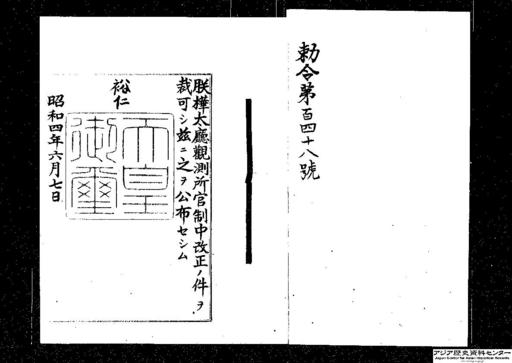 勅令第百四十八號
朕樺太廳觀測所官制中改正ノ件ヲ
裁可シ茲ニ之ヲ公布セシム
裕仁
天皇御璽
昭和四年六月七日
アジア歴史資料センター
Japan Center for Asian Historical Records